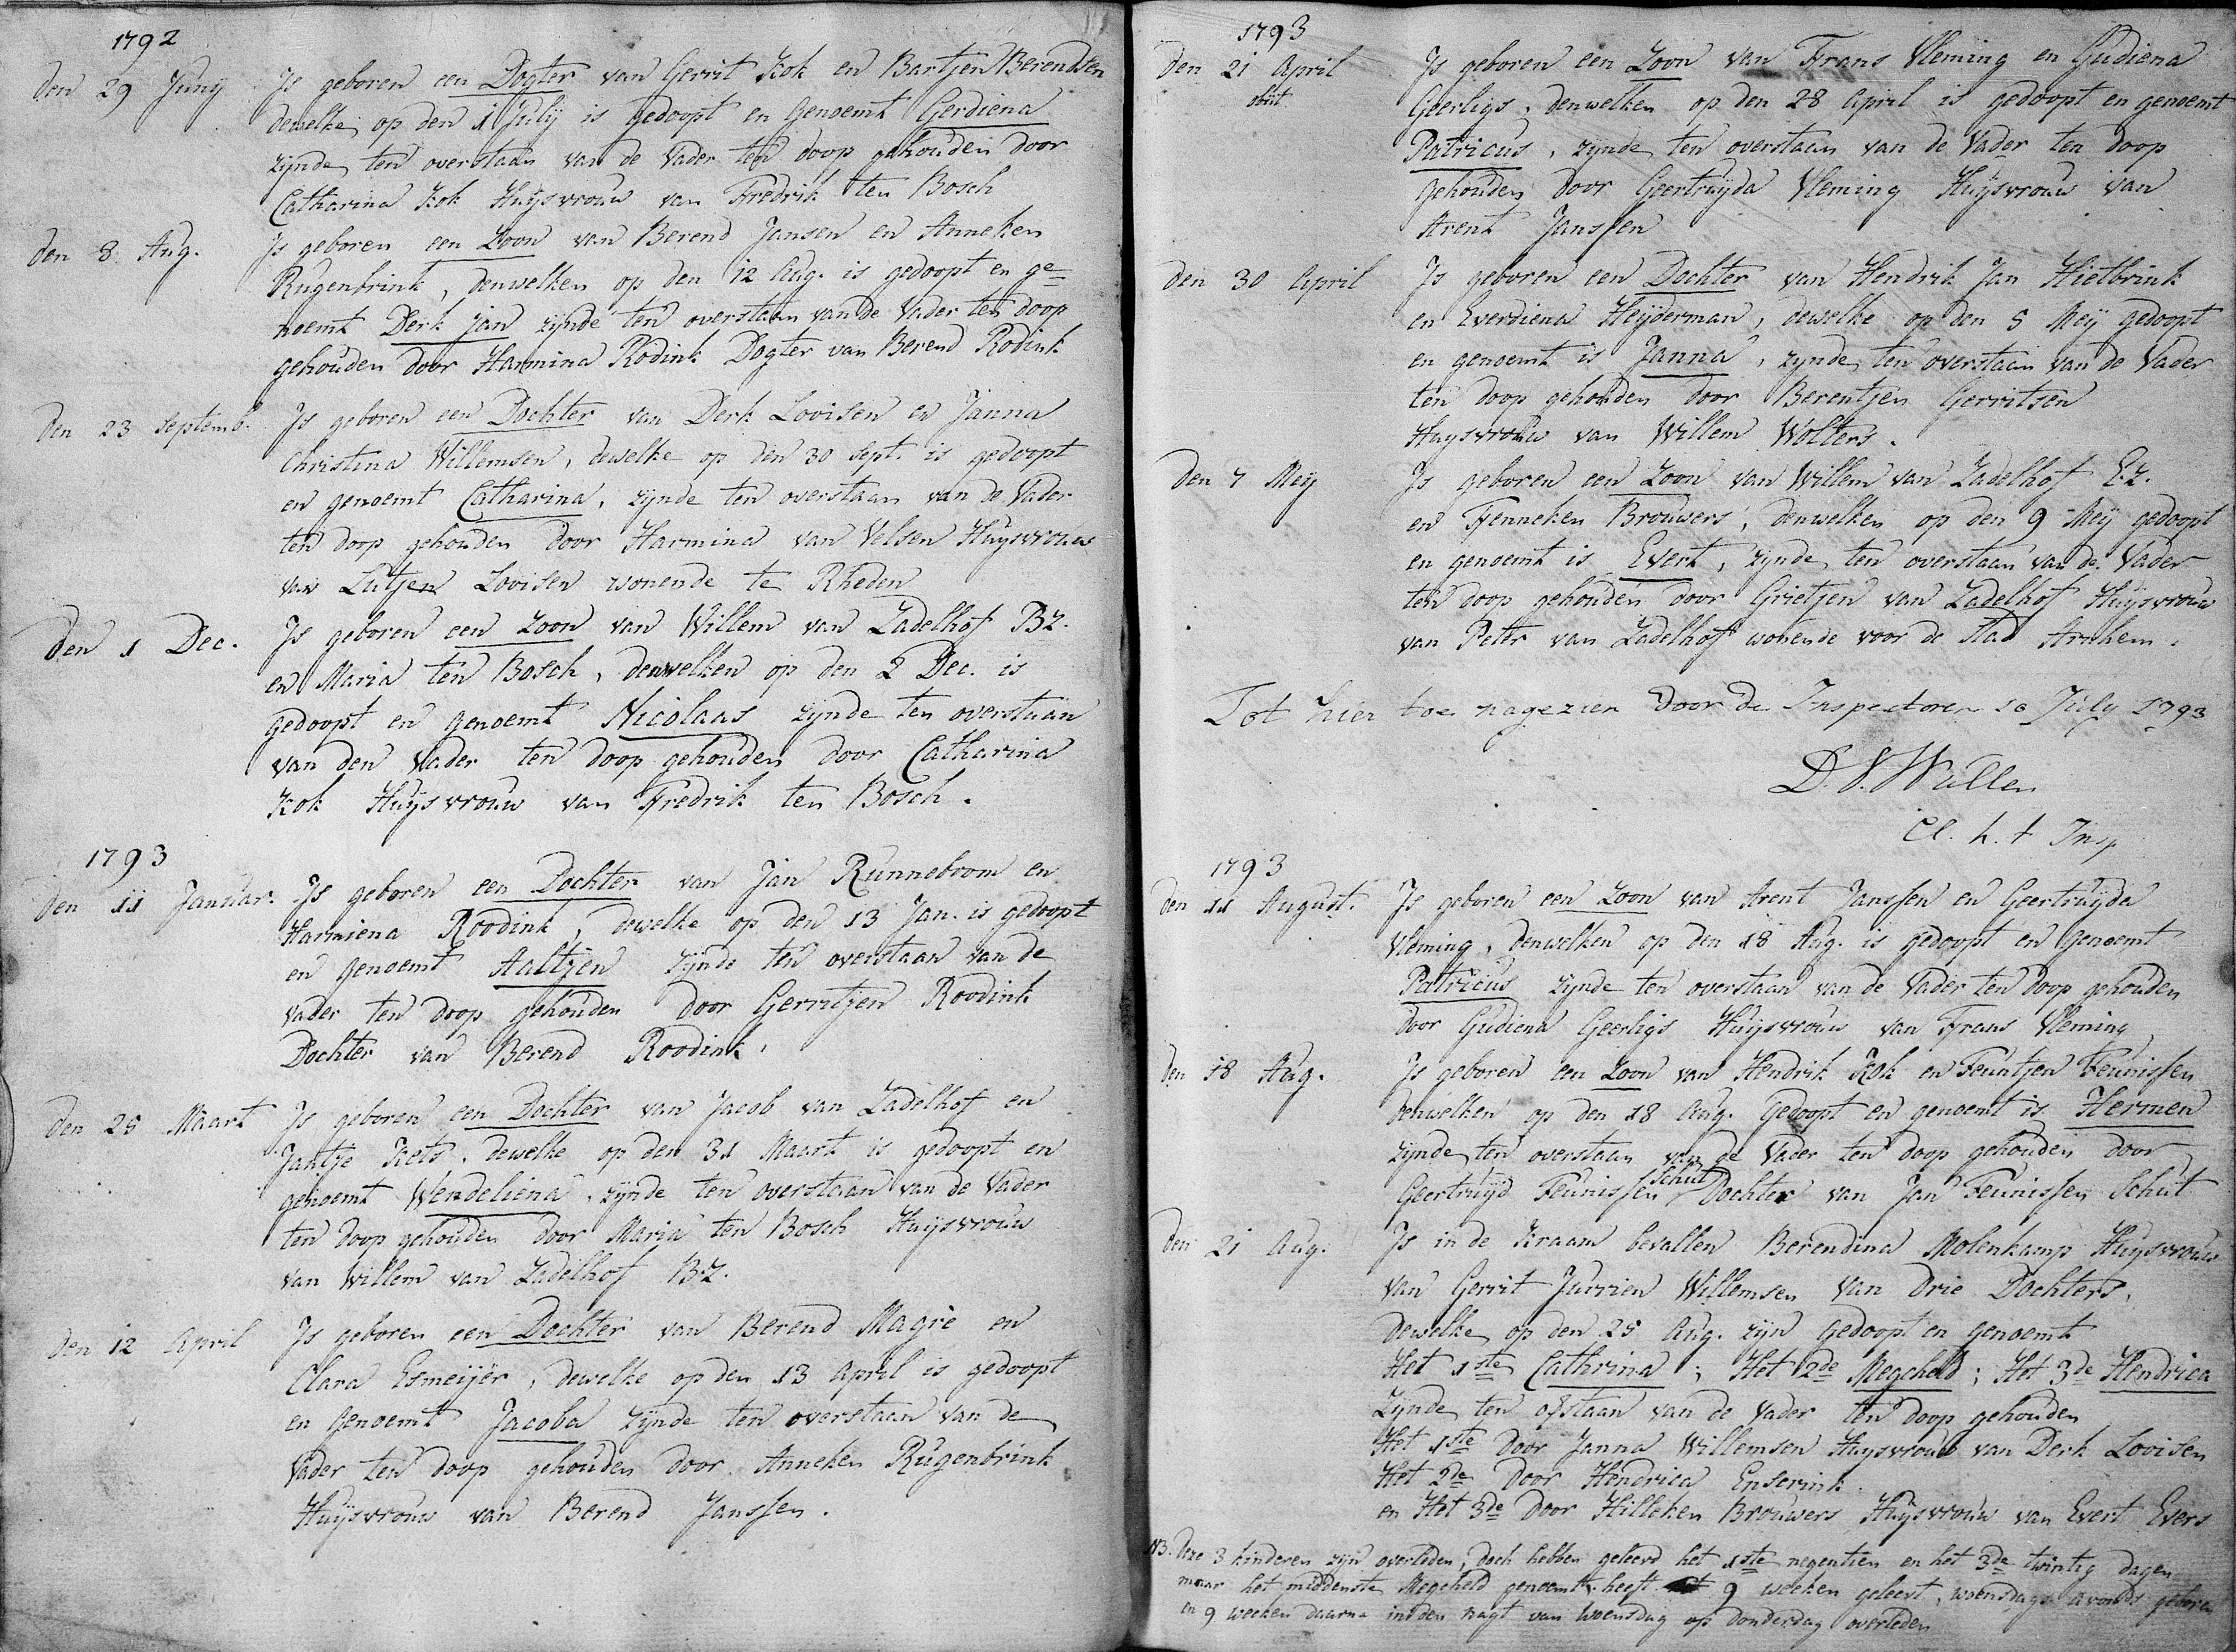 1792
Den 29 Junij Is geboren een Dogter van Gerrit Kok en Bartjen Berendsen
dewelke op den 1 Julij is gedoopt en Genoemt Gerdiena
zijnde ten overstaan van de Vader ten doop gehouden door
Catharina Kok Huijsvrouw van Fredrik ten Bosch
Den 8 Aug. Is geboren een Zoon van Berend Jansen en Anneken
Rugenbrink, denwelken op den 12 Aug. is gedoopt en ge=
noemt Derk Jan zijnde ten overstaan van de Vader ten doop
gehouden door Harmina Rodink Dogter van Berend Rodink
Den 23 Septemb. Is geboren een Dochter van Derk Lovisen en Janna
Christina Willemsen, dewelke op den 30 Sept. is gedoopt
en genoemt Catharina, zijnde ten overstaan van de Vader
ten doop gehouden door Harmina van Velsen Huysvrouw
van Lutjen Lovisen wonende te Rheden
Den 1 Dec. Is geboren een Zoon van Willem van Zadelhof BZ.
en Maria ten Bosch, denwelken op den 2 Dec. is
gedoopt en genoemt Nicolaas zijnde ten overstaan
van den Vader ten doop gehouden door Catharina
Kok Huijsvrouw van Fredrik ten Bosch.
1793
Den 11 Januar. Is geboren een Dochter van Jan Runneboom en
Harmiena Roodink, dewelke op den 13 Jan. is gedoopt
en genoemt Aaltjen zijnde ten overstaan van de
Vader ten doop gehouden door Gerritjen Roodink
Dochter van Berend Roodink.
Den 25 Maart Is geboren een Dochter van Jacob van Zadelhof en
Jantje Kets, dewelke op den 31 Maart is gedoopt en
genoemt Wendeliena, zijnde ten overstaan van de Vader
ten doop gehouden door Maria ten Bosch Huijsvrouw
van Willem van Zadelhof BZ.
Den 12 April Is geboren een Dochter van Berend Magie en
Clara Esmeijer, dewelke op den 13 April is gedoopt
en Genoemt Jacoba zijnde ten overstaan van de
Vader ten doop gehouden door Anneken Rugenbrink
Huijsvrouw van Berend Janssen.
1793
Den 21 April Is geboren een Zoon van Frans Vleming en Gudiena
obiit Geerligs, denwelken op den 28 April is gedoopt en genoemt
Patricus, zijnde ten overstaan van de Vader ten doop
gehouden door Geertruijda Vleming Huijsvrouw van
Arent Janssen
Den 30 April Is geboren een Dochter van Hendrik Jan Hietbrink
en Everdiena Heijderman, dewelke op den 5 Meij gedoopt
en genoemt is Janna, zijnde ten overstaan van de Vader
ten doop gehouden door Berentjen Gerritsen
Huysvrouw van Willem Wolters.
Den 7 Meij Is geboren een Zoon van Willem van Zadelhof EZ.
en Fenneken Brouwers, denwelken op den 9 Meij gedoopt
en genoemt is Evert, zijnde ten overstaan van de Vader
ten doop gehouden door Grietjen van Zadelhof Huijsvrouw
van Peter van Zadelhof wonende voor de Stad Arnhem.
Tot hier toe nagezien door de Inspectoren 10 July 1793
D. V. Wullen
Cl. h. t Insp
1793
Den 11 August. Is geboren een Zoon van Arent Janssen en Geertruijda
Vleming, denwelken op den 18 Aug. is gedoopt en genoemt
Patricus zijnde ten overstaan van de Vader ten doop gehouden
door Gudiena Geerligs Huijsvrouw van Frans Vleming
Den 18 Aug. Is geboren een Zoon van Hendrik Kok en Teuntjen Teunissen
denwelken op den 18 Aug. Gedoopt en genoemt is Hermen
zijnde ten overstaan van de Vader ten doop gehouden door
Geertruijd Teunissen Schut Dochter van Jan Teunissen Schut
Den 21 Aug. Is in de Kraam bevallen Berendina Molenkamp Huijsvrouw
van Gerrit Jurrien Willemsen van Drie Dochters,
dewelke op den 25 Aug. zijn Gedoopt en genoemt
Het 1ste Cathrina; Het 2de Megcheld; Het 3de Hendrica
Zijnde ten ofstaan van de Vader ten doop gehouden
Het 1ste Door Janna Willemsen Huysvrouw van Derk Lovisen
Het 2de Door Hendrica Enserink
en Het 3de Door Hilleken Brouwers Huijsvrouw van Evert Evers
NB. deze 3 kinderen zijn overleden, doch hebben geleevd het 1ste negentien en het 3de twintig dagen
maar het middenste Megcheld genoemt heeft 9 weeken geleevt, woensdags avonds geboren
en 9 weeken daarna in den nagt van woensdag op donderdag overleden